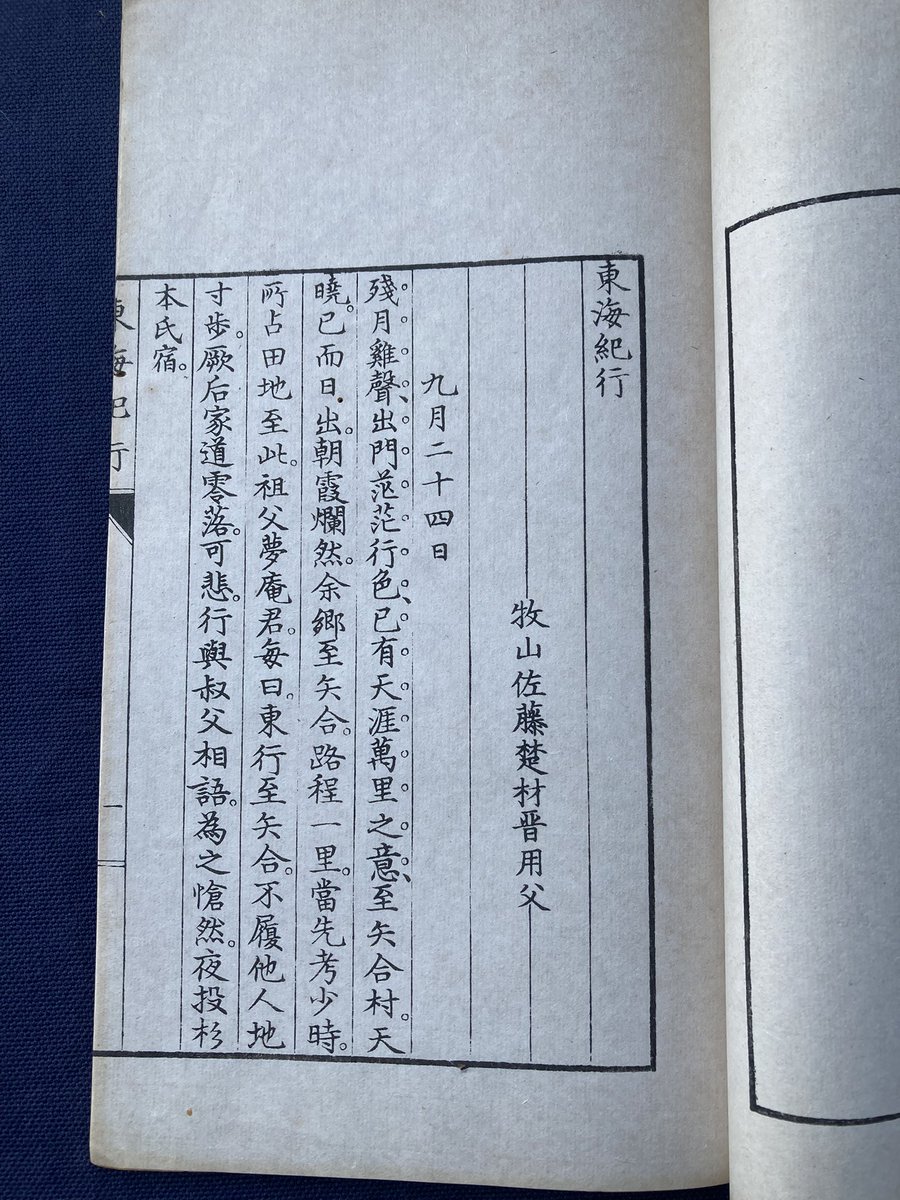 東海紀行
牧山佐藤楚材晋用父
九月二十四日
殘月雞聲、出門茫茫行色、已有天涯萬里之意、至矢合村。天
曉。已而日出。朝霞爛然。余鄉至矢合。路程一里。當先考少時。
所占田地至此。祖父夢庵君。每曰。東行至矢合。不履他人地
寸步。厥后家道零落。可悲。行與叔父相語。為之愴然。夜投杉
本氏宿。
東海紀行
一